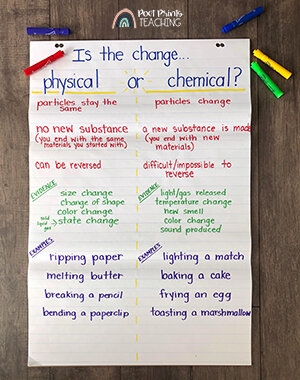 Poet Prints
TEACHING
Is the change...
physical or chemical?
particles stay the same
particles change
no new substance
(you end with the same materials you started with)
a new substance is made
(you end with new materials)
can be reversed
difficult/impossible to reverse
EVIDENCE
size change
change of shape
color change
solid liquid gas → state change
EVIDENCE
light/gas released
temperature change
new smell
color change
sound produced
EXAMPLES
ripping paper
melting butter
breaking a pencil
bending a paperclip
EXAMPLES
lighting a match
baking a cake
frying an egg
toasting a marshmallow